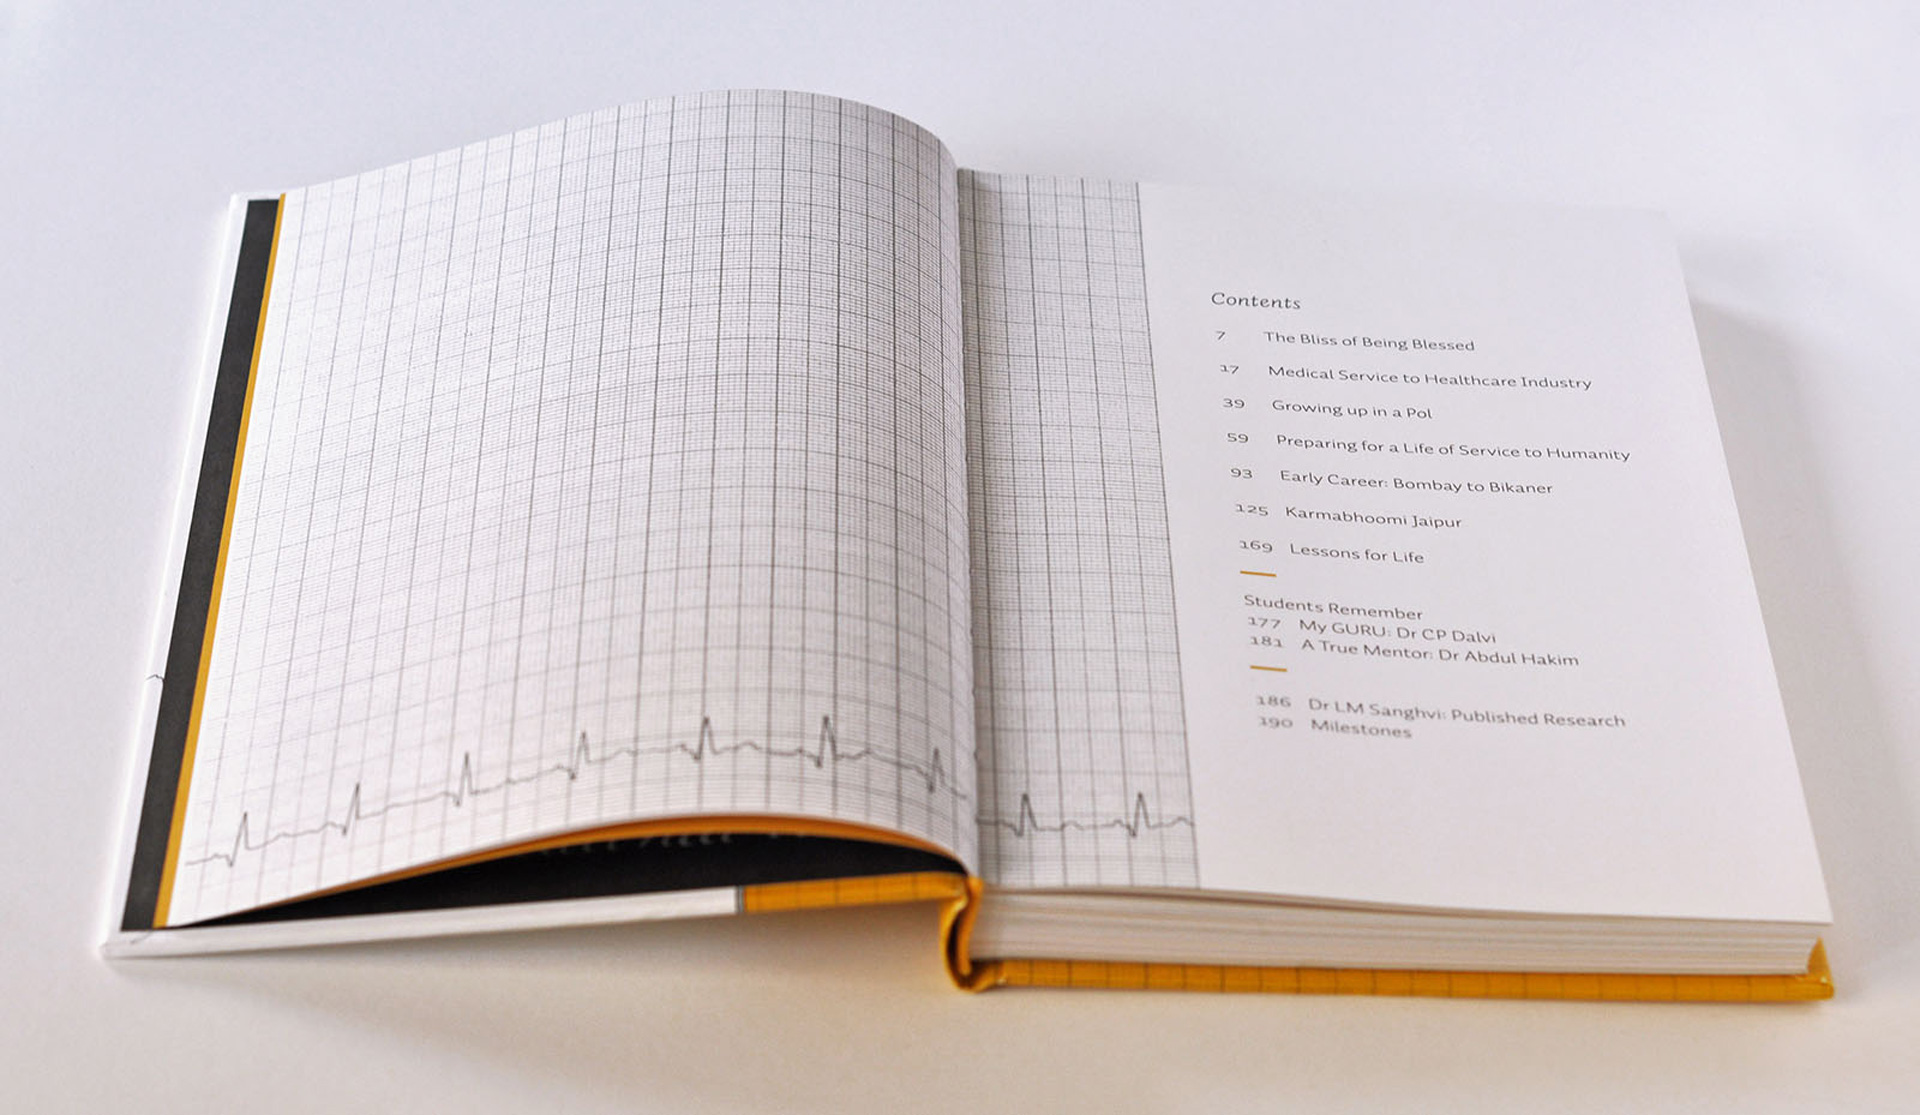 Contents
7 The Bliss of Being Blessed
17 Medical Service to Healthcare Industry
39 Growing up in a Pol
59 Preparing for a Life of Service to Humanity
93 Early Career: Bombay to Bikaner
125 Karmabhoomi Jaipur
169 Lessons for Life
Students Remember
177 My GURU: Dr CP Dalvi
181 A True Mentor: Dr Abdul Hakim
186 Dr LM Sanghvi: Published Research
190 Milestones